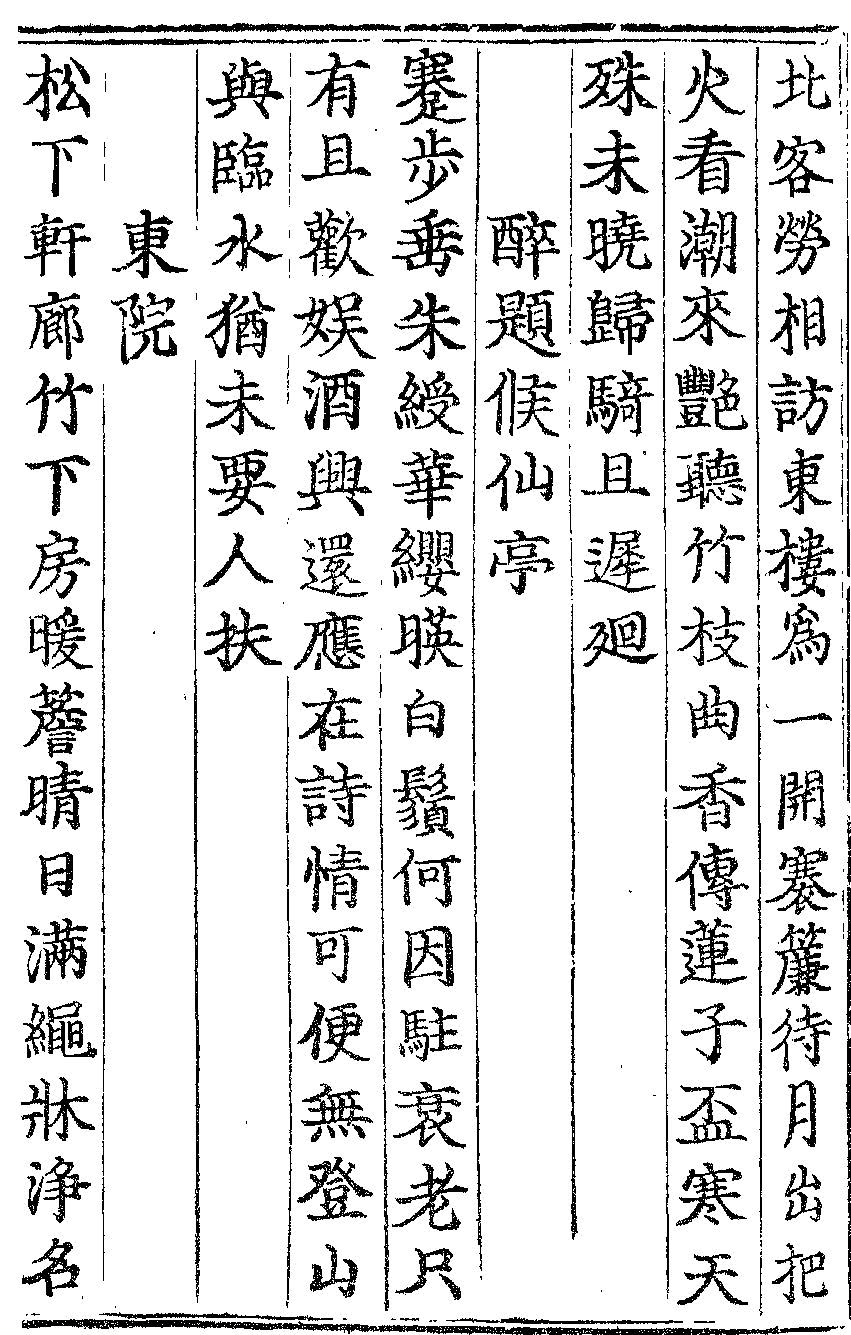 北客勞相訪東樓爲一開褰簾待月出把
火看潮來豔聽竹枝曲香傳蓮子盃寒天
殊未曉歸騎且遲廻
醉題候仙亭
蹇步垂朱綬華纓暎白鬚何因駐衰老只
有且歡娛酒興還應在詩情可便無登山
與臨水猶未要人扶
東院
松下軒廊竹下房暖簷晴日滿繩牀淨名